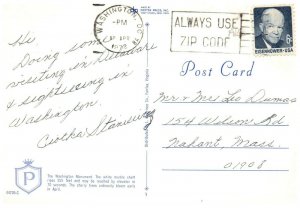 WASHINGTON, D.C.
PM
ALWAYS USE
ZIP CODE
EISENHOWER·USA
Hi
Doing some
visiting in Delaware
& sightseeing in
Washington.
Post Card
Mr & Mrs Leo Dumas
154 Wilson Rd
Nahant, Mass.
01908
P
The Washington Monument. The white marble shaft
rises 555 feet and may be reached by elevator in
70 seconds. The cherry trees ordinarily bloom early
in April.